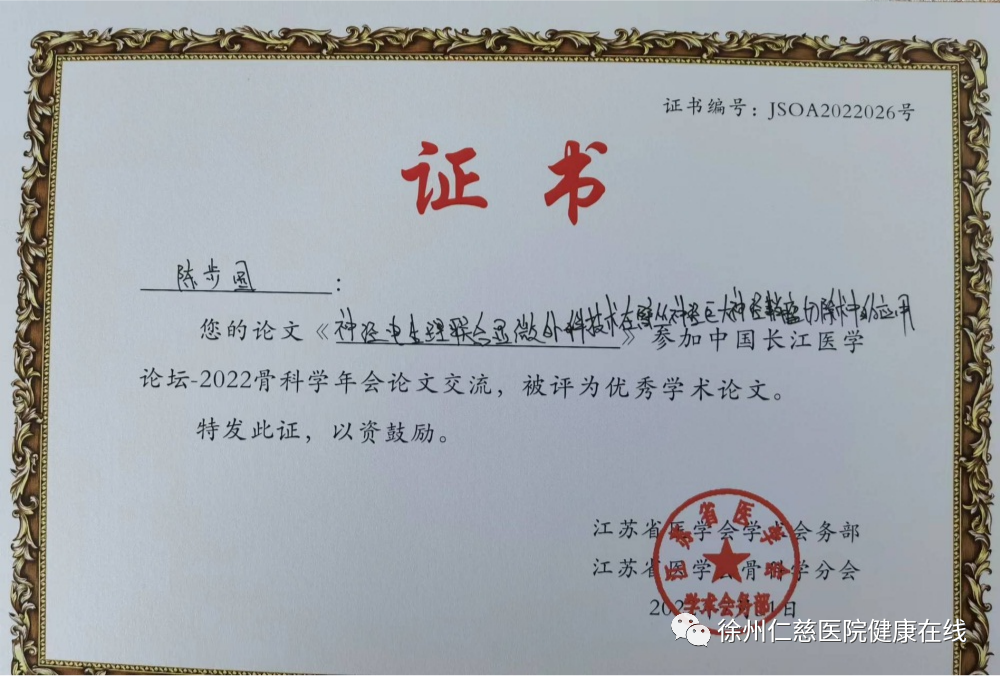 证书编号：JSOA2022026号
证书
陈步国：
您的论文《神经电生理联合显微外科技术在臂丛神经巨大神经鞘瘤切除术中的应用》参加中国长江医学
论坛-2022骨科学年会论文交流，被评为优秀学术论文。
特发此证，以资鼓励。
江苏省医学会学术会务部
江苏省医学会骨科学分会
202 1日
江苏省医学会
学术会务部
徐州仁慈医院健康在线